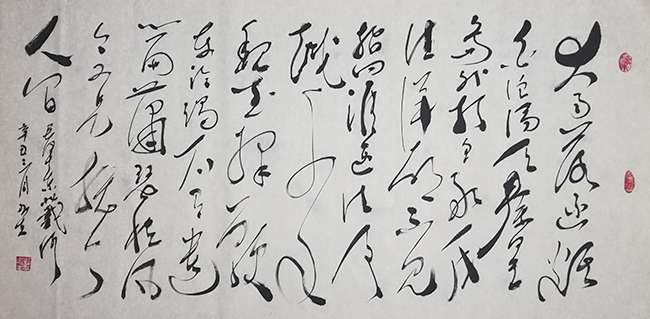 大雨落幽燕
白浪滔天秦皇
岛外打鱼船一片
汪洋都不见
知向谁边往事
越千年
魏武挥鞭
东临碣石有遗
篇萧瑟秋风
今又是换了
人间
毛泽东北戴河
辛丑三月